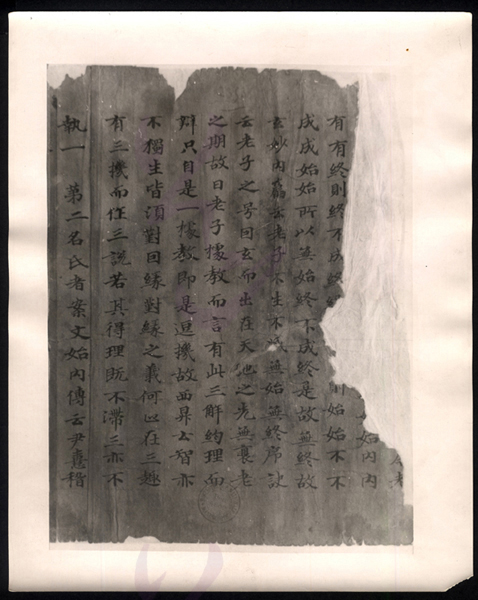 始內內
有有終則終不成終始始不不
成成始始所以無始終不成終是故無終故
玄妙內篇云老子不生不滅無始無終序訣
云老子之号因玄而出在天地之先無衰老
之期故曰老子據教而言有此三解約理而
辯只自是一據教即是逗機故西昇云智亦
不獨生皆須對因緣對緣之義何以在三趣
有三機而作三說若其得理既不滯三亦不
執一 第二名氏者案文始內傳云尹憙稽